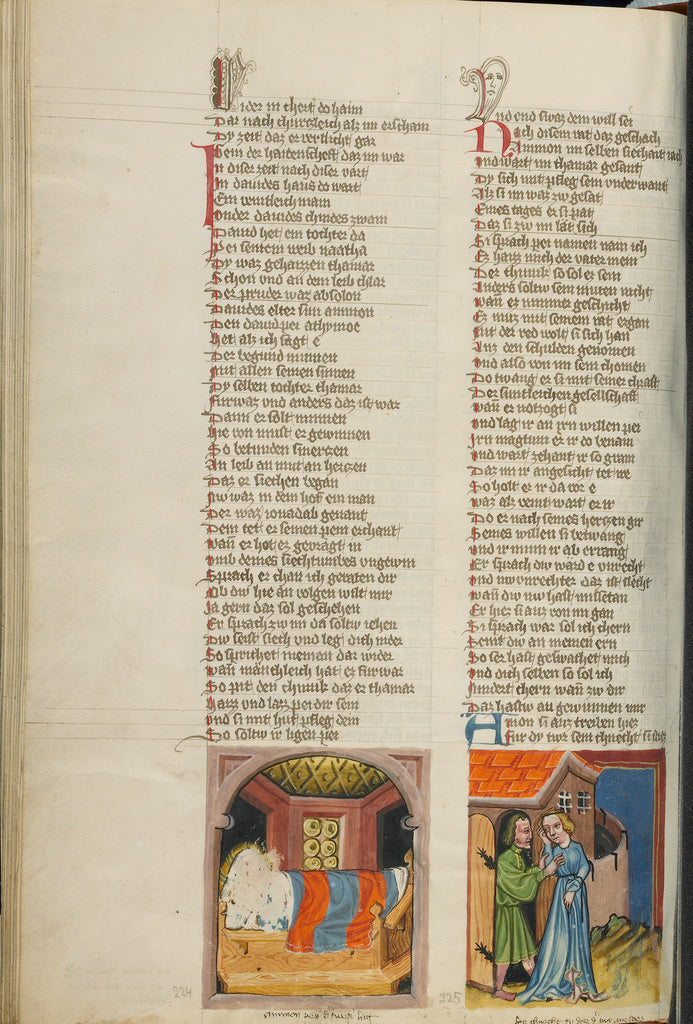 Wider in chert do haim
Dar nach churczleich als im erscham
Dy zeit daz er verslicht gar
Sein der haidenscheft daz im war
In diser zeit nach diser vart
In dauides haus do wart
Ein
Under dauides chindes zwain
Dauid het ein tochter da
Pei seinem weib naatha
Dy waz gehaizzen thamar
Schon vnd an dem leib chlar
Der pruder waz absolon
Dauides elter sun ammon
Den dauid per athynoe
Het als ich sagt e
Der begund minnen
Mit allen seinen sinnen
Dy selben tochter thamar
Fürwaz vnd anders daz ist war
Dann er solt minnen
Hie von must er gewinnen
So
An leib an mut an herczen
Daz er siechen began
Nw waz in dem hof ein man
Der waz ionadab genant
Dem tet er seinen pein erchant
Wann er het er gevragt in
Vmb deines siechtumbes vngewin
Sprach er chan ich geraten dir
Ob dw hie an volgen wilt mir
Ja gern daz sol geschehen
Er sprach zw im da soltw iehen
Dw seist siech vnd leg dich nider
So sprichet nieman dar wider
Wann mänchleich hat er für war
So pit den chunik daz er thamar
Haizz vnd lazz pei dir sein
Vnd si mit hut pfleg dein
So soltw ir ligen pei
Vnd end swaz dein will sei
Nach disem rat daz geschach
Ammon im selben siechait iach
Vnd wart im thamar gesant
Dy sich mit pfleg sein vnderwant
Als si im waz zw gesat
Eines tages er si pat
Daz si zw im lät sich
Si sprach pei namen nain ich
Ez haiz mich der vater mein
Der chunik so sol ez sein
Anders soltw sein muten nicht
Wann ez nimmer geschicht
Ez muz mit seinem rat ergan
Mit der red wolt si sich han
Auz den schulden genomen
Vnd also von im sein chomen
Do twang er si mit seiner chraft
Der suntleichen gesellschaft
Wann er notzogt si
Vnd lag ir an irn willen pei
Irn magtum er ir do benam
Vnd wart zehant ir so gram
Daz im ir angesicht tet we
So holt er ir da vor e
Waz als veint wart er ir
Do er nach seines herczen gir
Seines willen si betwang
Vnd ir minn ir ab errang
Er sprach dw ward e vnrecht
Vnd nw vnrechter daz ist slecht
Wann dw nw hast missetan
Er hiez si auz von im gan
Si sprach war sol ich chern
Seint dw an meinen ern
So ser hast geswachet mich
Vnd dich selben so sol ich
Nindert chern wann zw dir
Daz hastw an gewinnen mir
Amon si auz treiben hiez
Für dy tür sein chnecht si stiez
224
225